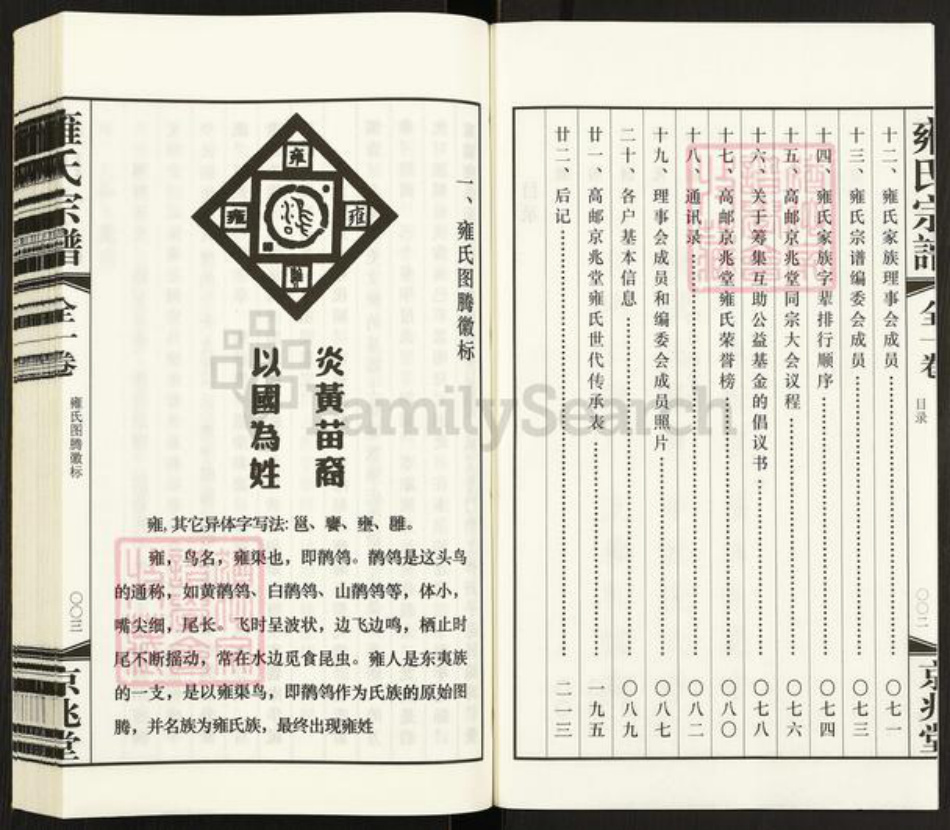 雍氏宗谱
全一卷
目录
〇〇二
京兆堂
十二、雍氏家族理事会成员 〇七一
十三、雍氏宗谱编委会成员 〇七三
十四、雍氏家族字辈排行顺序 〇七四
十五、高邮京兆堂同宗大会议程 〇七六
十六、关于筹集互助公益基金的倡议书 〇七八
十七、高邮京兆堂雍氏荣誉榜 〇八〇
十八、通讯录 〇八二
十九、理事会成员和编委会成员照片 〇八七
二十、各户基本信息 〇八九
廿一、高邮京兆堂雍氏世代传承表 一九五
廿二、后记 二一三
一、雍氏图腾徽标
雍
雍
雍
炎黄苗裔
以國為姓
雍,其它异体字写法:邕、饔、壅、雝。
雍,鸟名,雍渠也,即鹡鸰。鹡鸰是这头鸟
的通称,如黄鹡鸰、白鹡鸰、山鹡鸰等,体小,
嘴尖细,尾长。飞时呈波状,边飞边鸣,栖止时
尾不断摇动,常在水边觅食昆虫。雍人是东夷族
的一支,是以雍渠鸟,即鹡鸰作为氏族的原始图
腾,并名族为雍氏族,最终出现雍姓
雍氏宗谱
全一卷
雍氏图腾徽标
〇〇三
京兆堂
FamilySearch